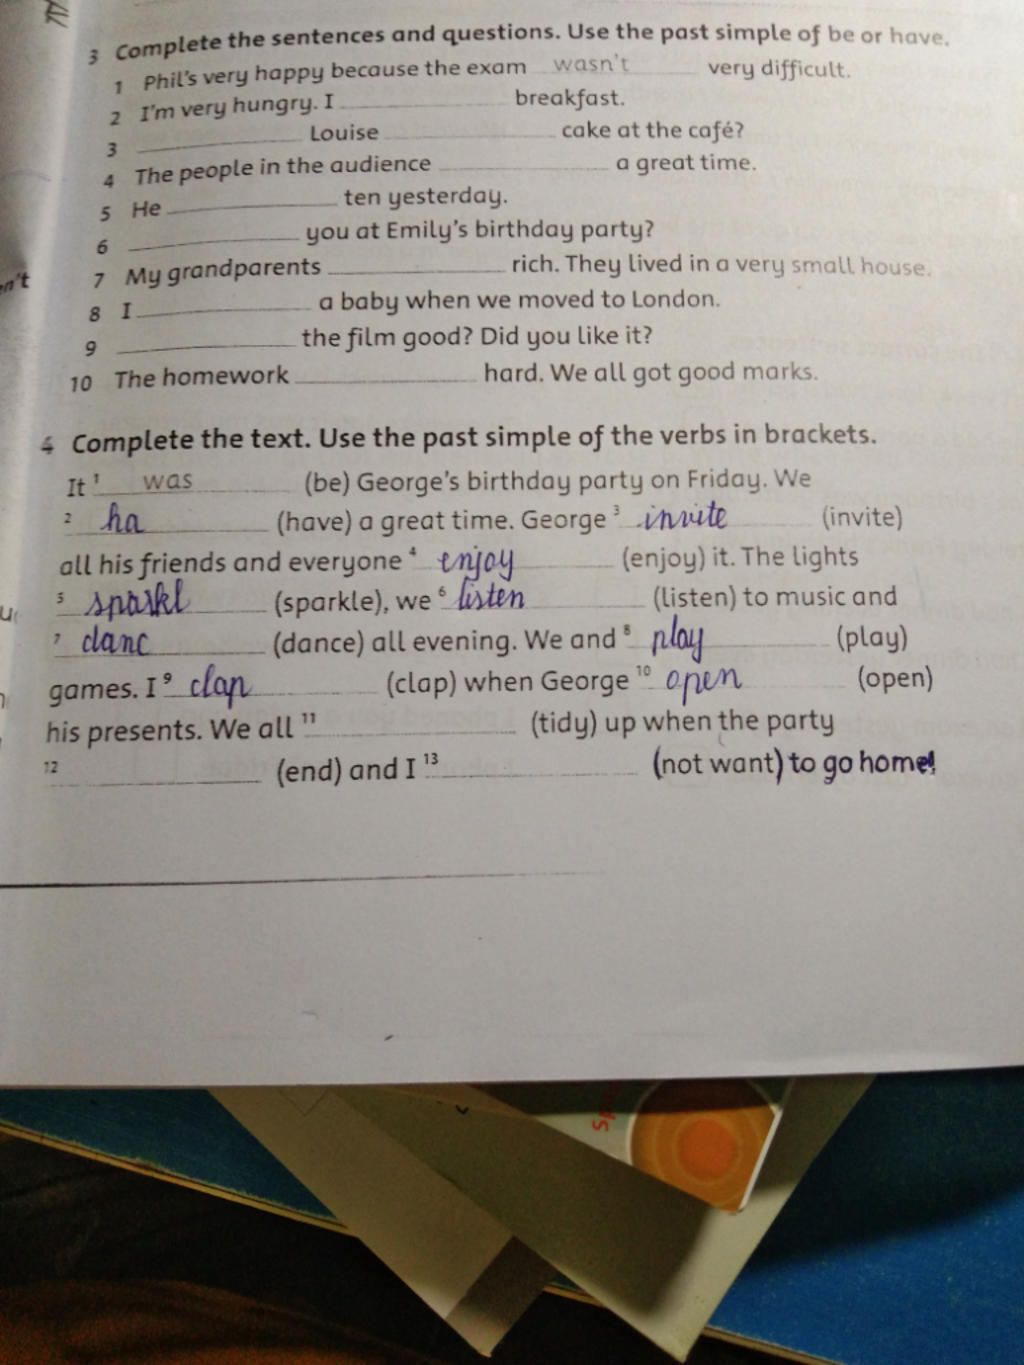 3 Complete the sentences and questions. Use the past simple of be or have.
1 Phil's very happy because the exam wasn't very difficult.
2 I'm very hungry. I ____ breakfast.
3 ____ Louise ____ cake at the café?
4 The people in the audience ____ a great time.
5 He ____ ten yesterday.
6 ____ you at Emily's birthday party?
7 My grandparents ____ rich. They lived in a very small house.
8 I ____ a baby when we moved to London.
9 ____ the film good? Did you like it?
10 The homework ____ hard. We all got good marks.
4 Complete the text. Use the past simple of the verbs in brackets.
It 1 was (be) George's birthday party on Friday. We
2 ha (have) a great time. George 3 invite (invite)
all his friends and everyone 4 enjoy (enjoy) it. The lights
5 sparkl (sparkle), we 6 listen (listen) to music and
7 danc (dance) all evening. We and 8 play (play)
games. I 9 clap (clap) when George 10 open (open)
his presents. We all 11 ____ (tidy) up when the party
12 ____ (end) and I 13 ____ (not want) to go home!